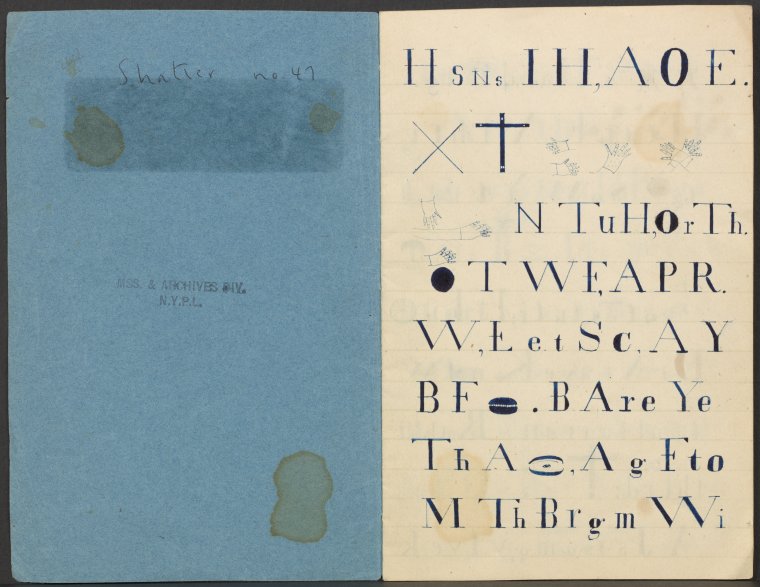 Shaker no. 47
MSS. & ARCHIVES DIV.
N.Y.P.L.
H S N s I H, A O E.
N T u H, o r T h.
T W F, A P R.
W, L e t S c, A Y
B F . B A r e Y e
T h A , A g F t o
M T h B r g m W i